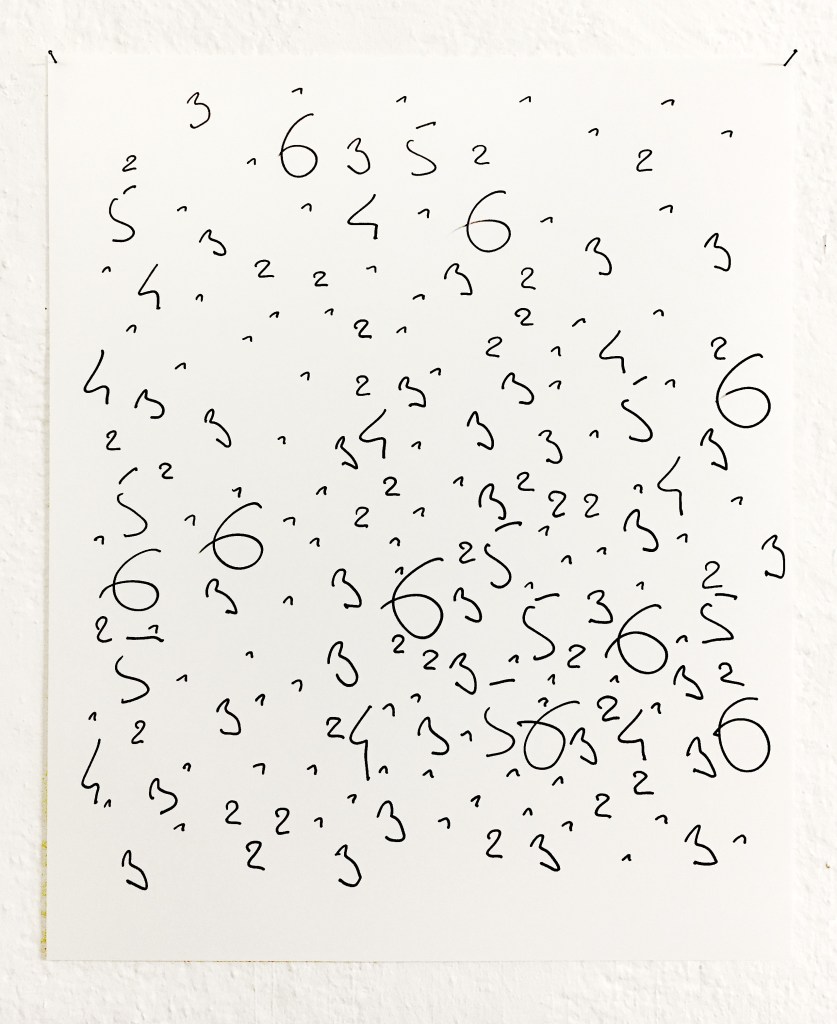 3 1 1 1 1
2 1 6 3 5 2 1 2 1
5 1 3 1 4 1 6 1 3 1 3
1 4 1 2 2 1 1 3 2
1 1 1 1 2 1 2 2 1 1 4 1 2
4 3 1 1 2 3 1 3 1 5 1 6
2 3 1 3 4 1 3 3 1 3
5 2 1 1 6 1 1 2 2 1 1 3 2 2 2 1 4 1
1 1 1 2 5 1 1 1 3 1 3
6 3 1 3 1 6 3 1 3 1 2
2 1 1 3 2 2 3 1 5 2 6 1 5
5 1 1 1 1 1 3 2
1 2 3 2 4 1 1 3 1 5 1 6 3 2 4 1 3 6
4 1 3 1 1 1 1 1 1 1 2
1 2 2 1 1 3 1 1 1 1 2 1
3 2 3 2 3 1 3 1